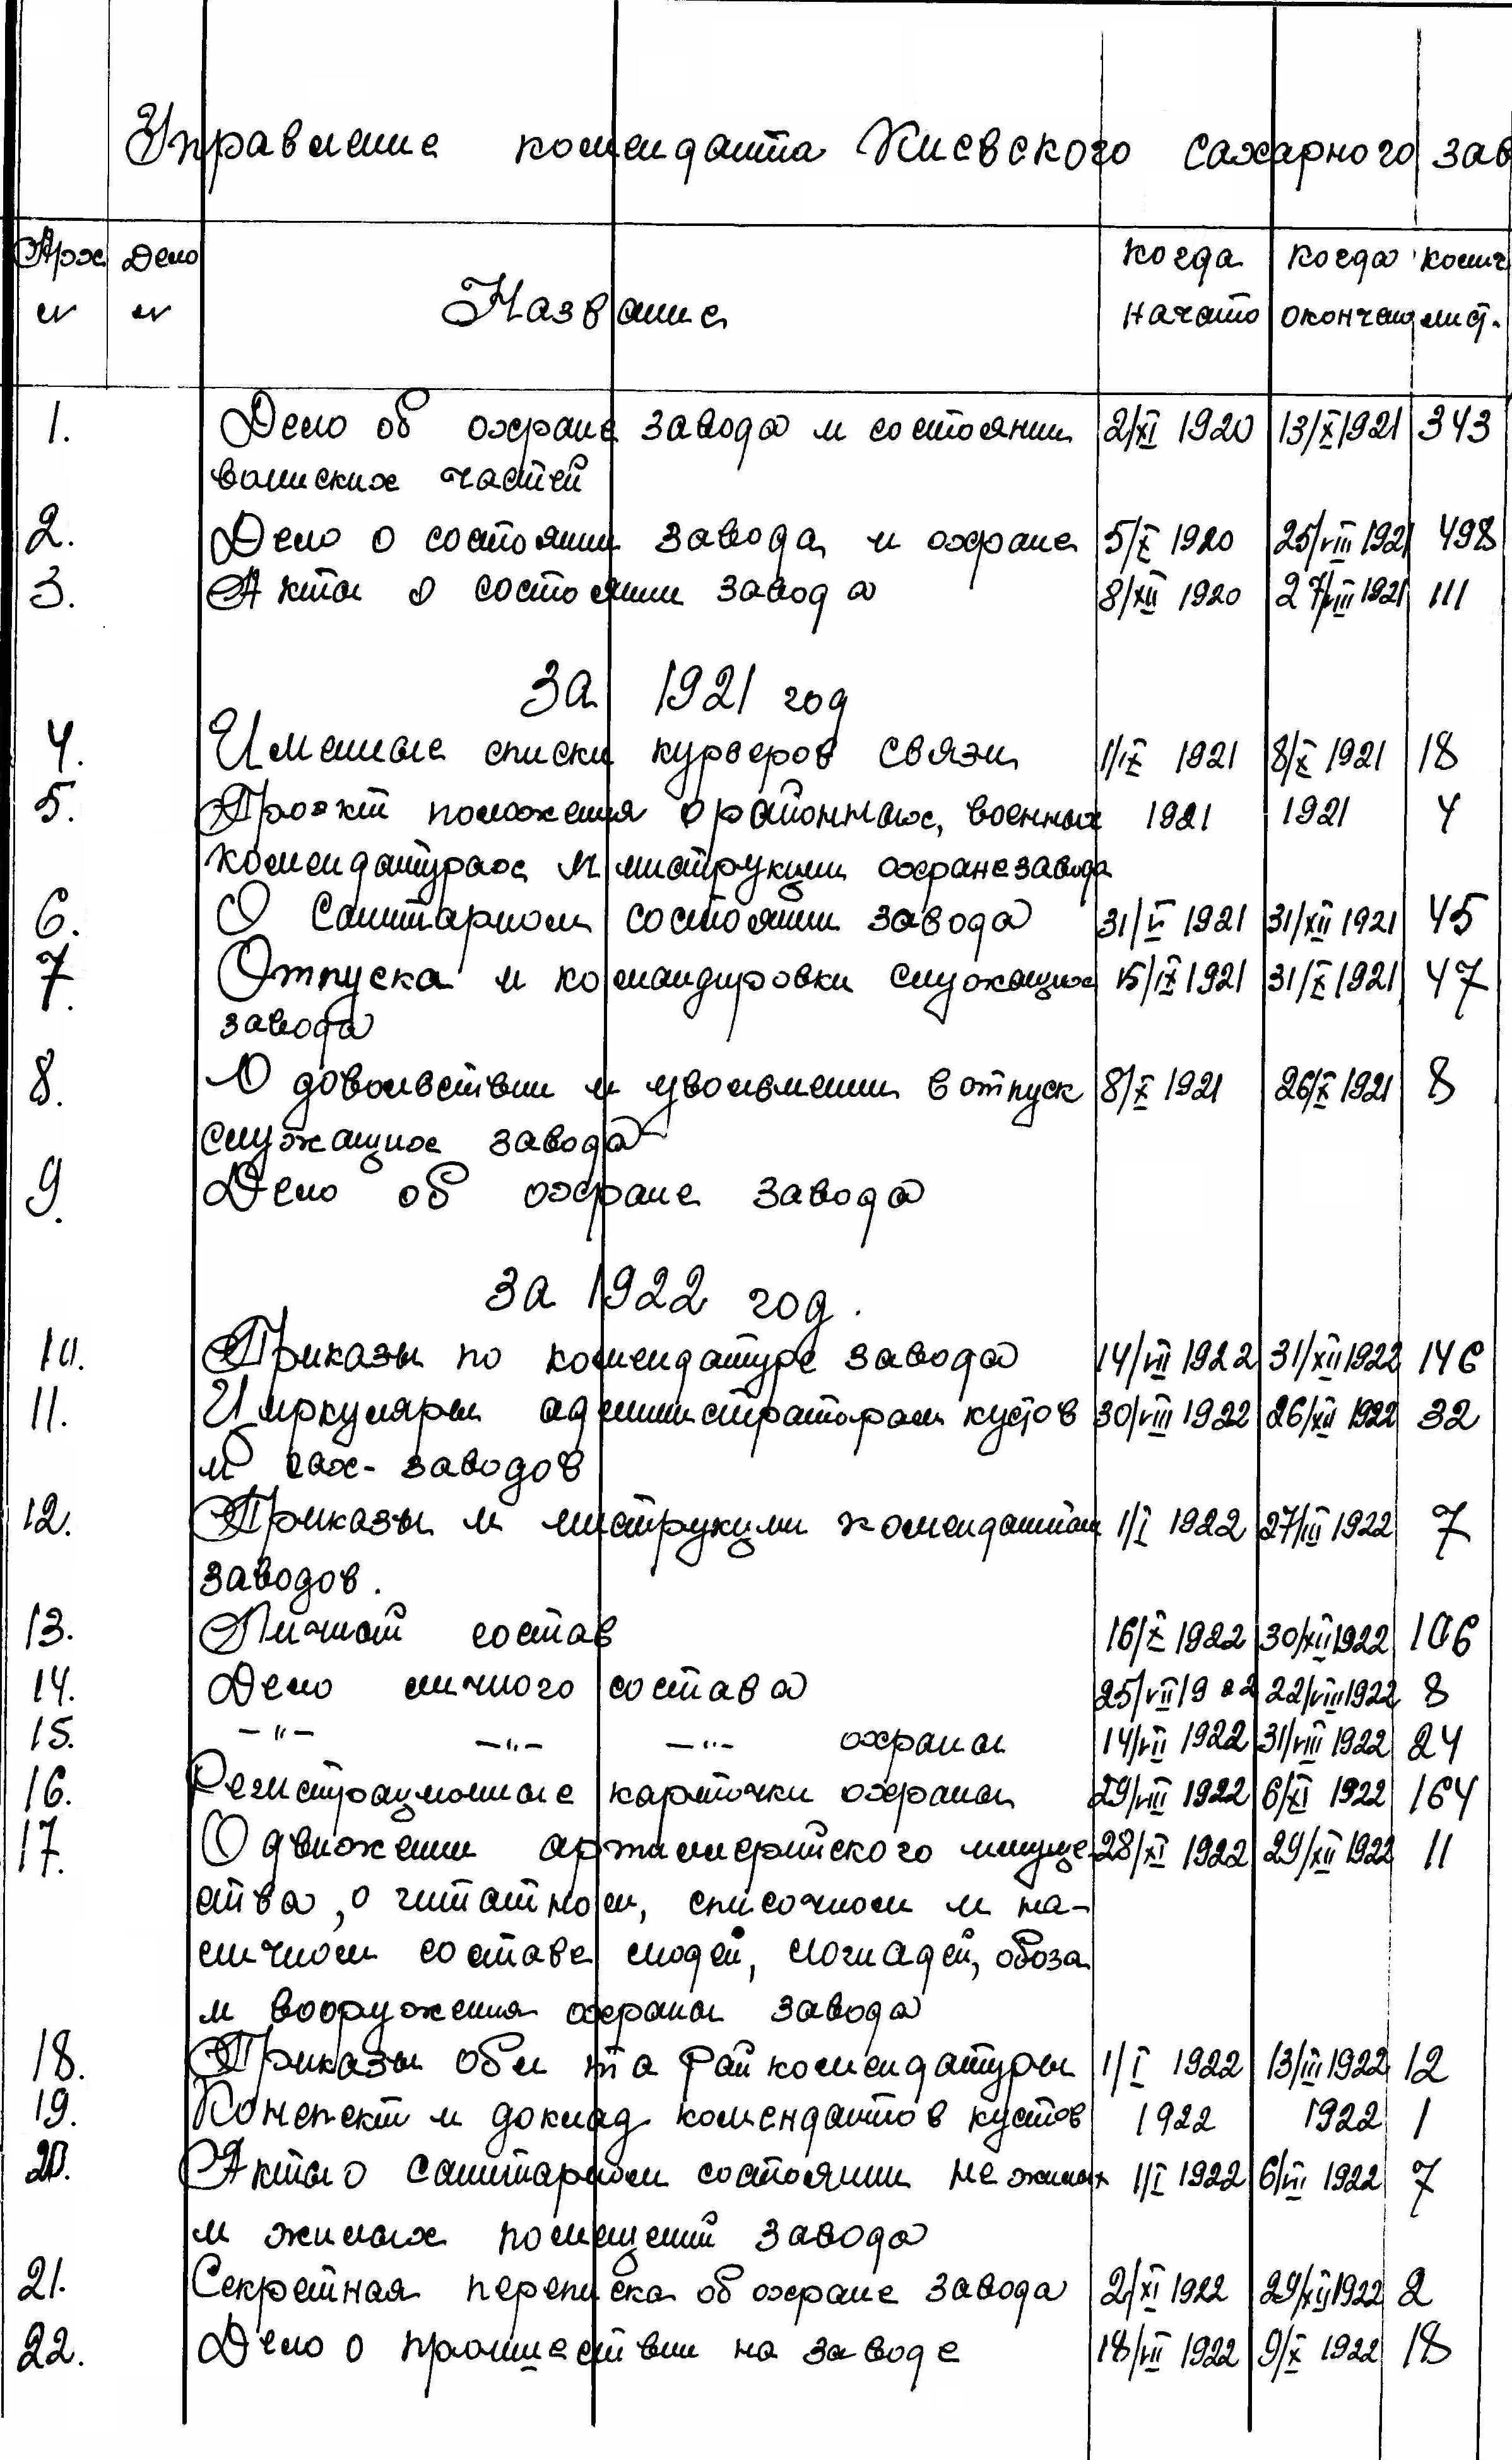 Управление коменданта Киевского сахарного зав
Арх Дело Название когда когда колич
№ № начато окончено лист.
1. Дело об охране завода и состоянии 2/XI 1920 13/X 1921 343
воинских частей
2. Дело о состоянии завода и охране 5/X 1920 25/VIII 1921 498
3. Акты о состоянии завода 8/XII 1920 27/VIII 1921 111
За 1921 год
4. Именные списки курьеров связи 1/IX 1921 8/X 1921 18
5. Проэкт положения о районных, военных 1921 1921 4
комендатурах и инструкции охране завода
6. О санитарном состоянии завода 31/V 1921 31/XII 1921 45
7. Отпуска и командировки служащих 15/IX 1921 31/X 1921 47
завода
8. О довольствии и увольнении в отпуск 8/X 1921 26/X 1921 8
служащих завода
9. Дело об охране завода
За 1922 год.
10. Приказы по комендатуре завода 14/VII 1922 31/XII 1922 146
11. Циркуляры администраторам кустов 30/VIII 1922 26/XII 1922 32
и сах-заводов
12. Приказы и инструкции комендантам 1/I 1922 27/III 1922 7
заводов.
13. Личный состав 16/X 1922 30/XII 1922 106
14. Дело личного состава 25/VII 1922 22/VIII 1922 8
15. -"- -"- -"- охраны 14/VII 1922 31/VIII 1922 24
16. Регистрационные карточки охраны 29/VIII 1922 6/XI 1922 164
17. О движении артиллерийского имуще- 28/XI 1922 29/XII 1922 11
ства, о штатном, списочном и на-
личном составе людей, лошадей, обоза
и вооружения охраны завода
18. Приказы обл та Рай комендатуры 1/I 1922 13/III 1922 12
19. Конспект и доклад комендантов кустов 1922 1922 1
20. Акты о санитарном состоянии не жилых 1/I 1922 6/VII 1922 7
и жилых помещений завода
21. Секретная переписка об охране завода 2/XI 1922 29/XII 1922 2
22. Дело о происшествии на заводе 18/VII 1922 9/X 1922 18